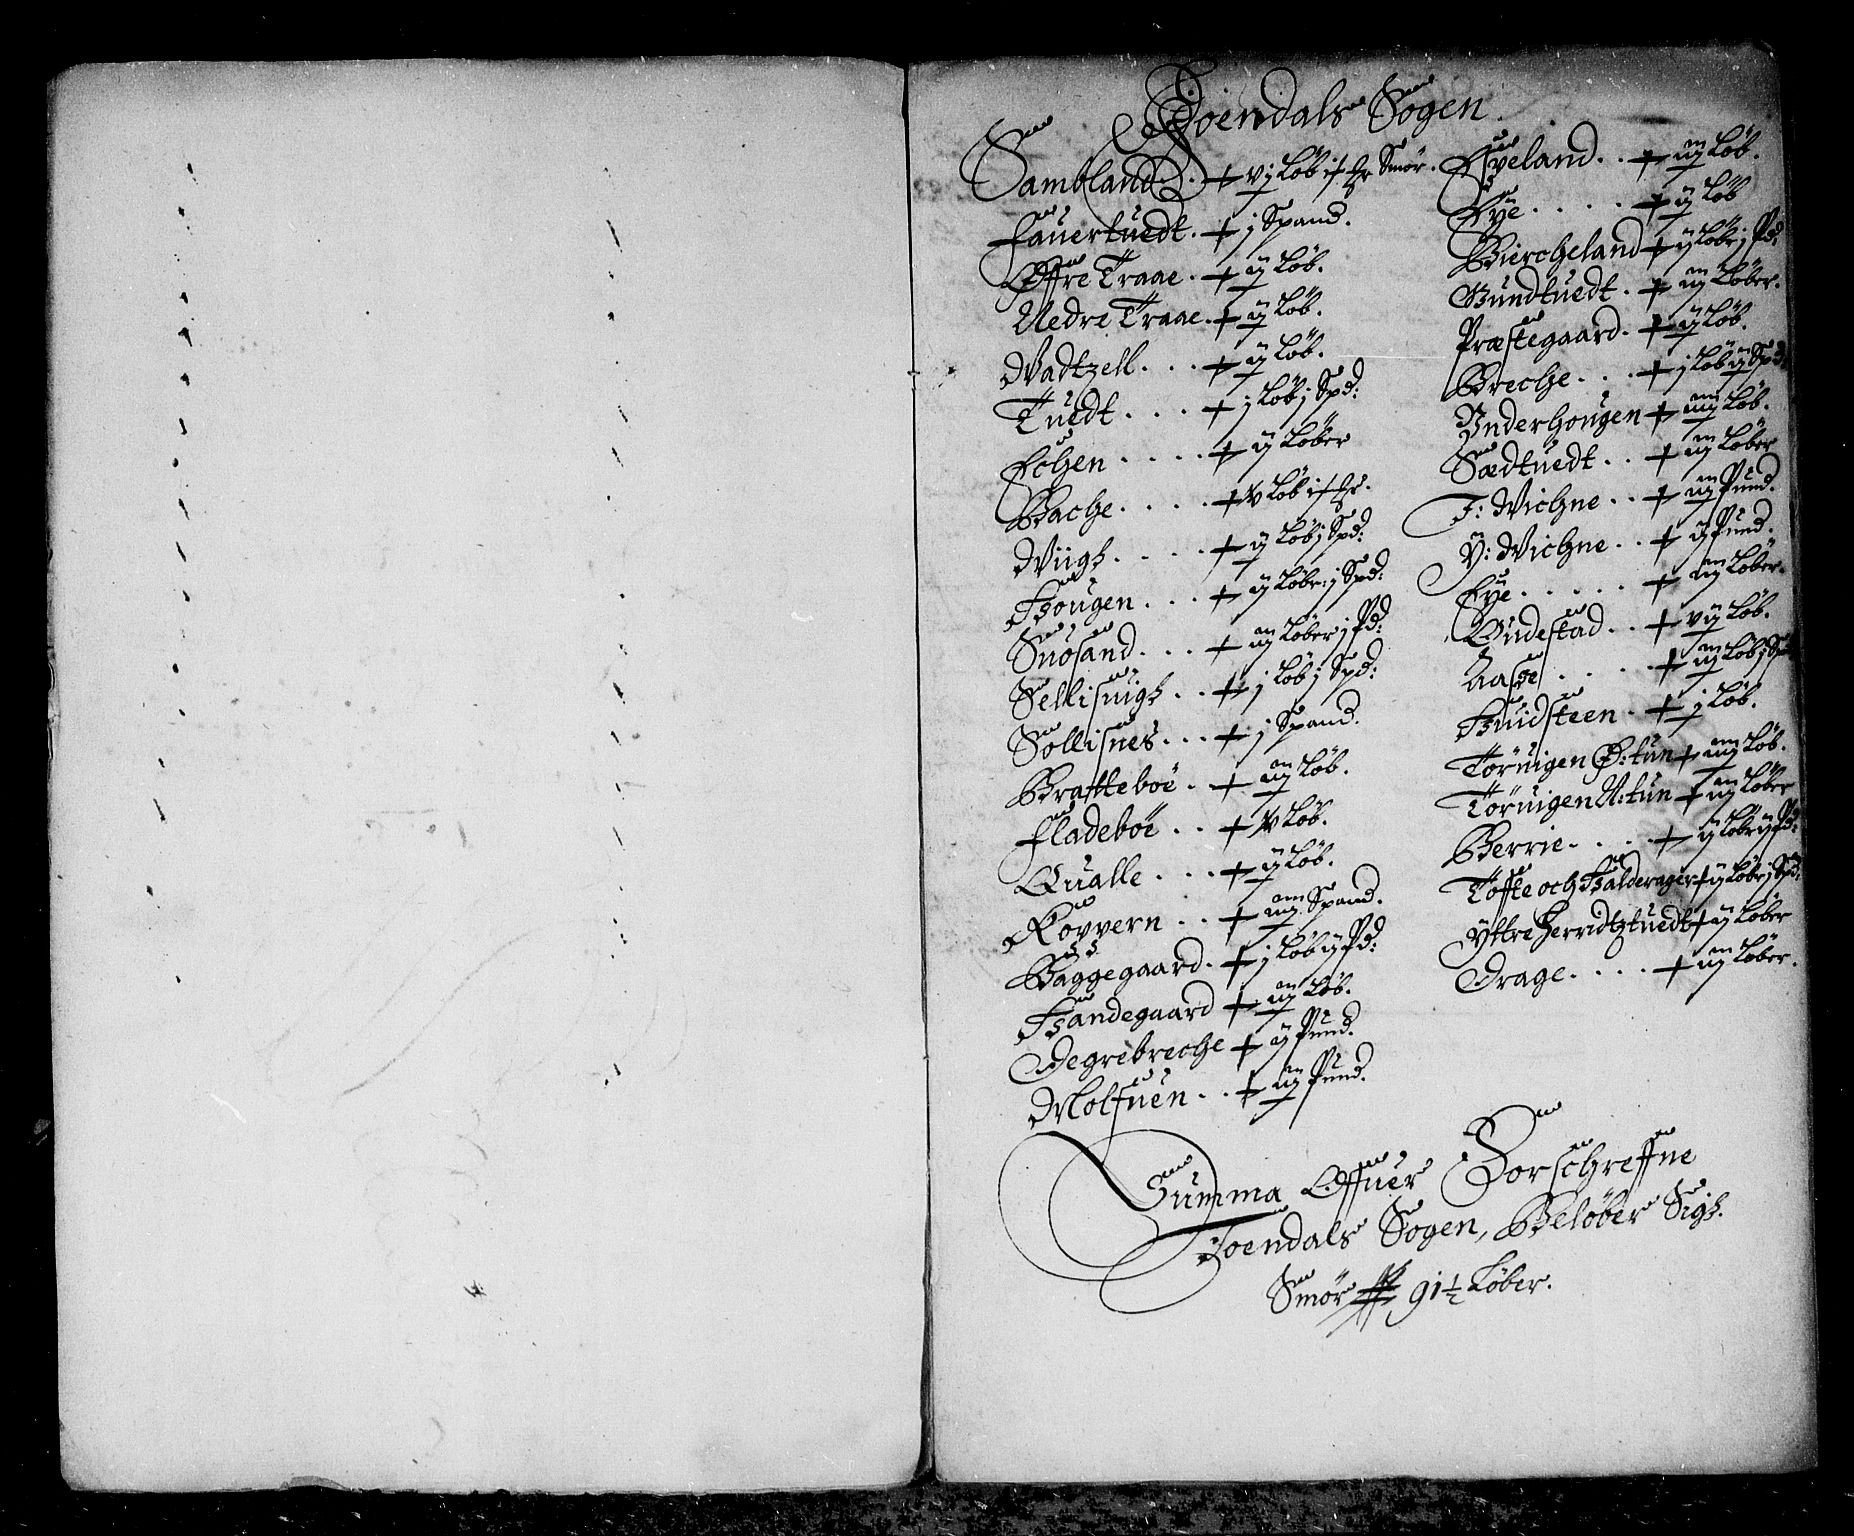 Joendals Sogen
Sambland . . vj Løb
Fauertuedt . j Spand.
Øffre Traae . ij Løb.
Nedre Traae . ij Løb.
Vadtzell . . . ij Løb.
Tuedt . . . . j Løb j Spd:
Echen . . . . ij Løber
Bache . . . .
Viigh . . . . ij Løb j Spd:
Hougen . . . ij Løbr: j Spd:
Snosand . . . iij Løber j Pd:
Sellisuigh . . j Løb j Spd:
Sollisnes . . . j Spand.
Bratteboe . iij Løb.
Fladeboe . .
Qualle . . . ij Løb.
Kovvern . . iiij Spand.
Baggegaard . j Løb ij Pd:
Handegaard iij Løb.
Degrebreche ij Pund.
Molfuen . . iij Pund.
Espeland . . iij Løb.
Eye . . . . . ij Løb
Biercheland ij Løbr j Pd:
Gundtuedt . iij Løber.
Præstegaard . ij Løb.
Breche . . . j Løb ij Spd:
Underhougen iiij Løb.
Sædtuedt . . iij Løber
I: Vichne . . iij Pund.
Y: Vichne . . ij Pund.
Eye . . . . . iij Løber.
Gudestad . . vij Løb.
Aase . . . . iij Løb j Spd
Huidsteen . j Løb.
Töruigen Ø: tun iiij Løb.
Töruigen N: tun iij Løber
Berrie . . . . ij Løbr ij Pd:
Tofte och Halderager ij Løbr j Spd:
Yttre Herridtztuedt ij Løber
Drage . . . . iij Løber.
Summa Offuer Forschreffne
Joendals Sogen, Beløber Sigh.
Smør 91½ Løber.